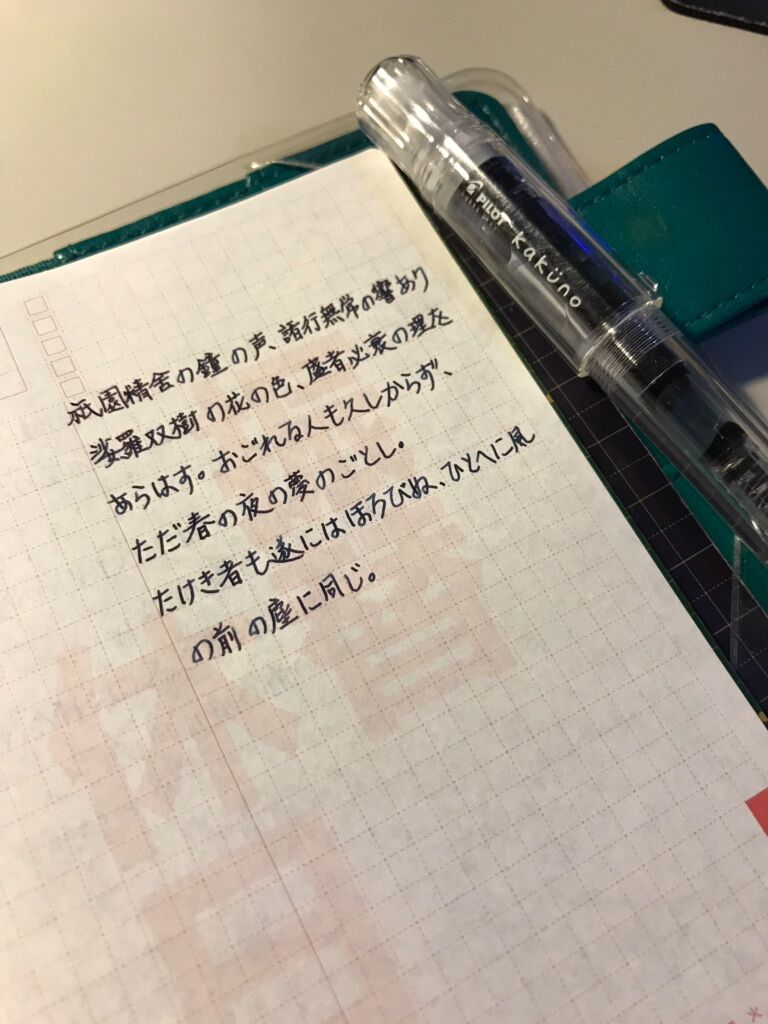 祇園精舎の鐘の声、諸行無常の響あり
娑羅双樹の花の色、盛者必衰の理を
あらはす。おごれる人も久しからず、
ただ春の夜の夢のごとし。
たけき者も遂にはほろびぬ、ひとへに風
の前の塵に同じ。
PILOT kaküno